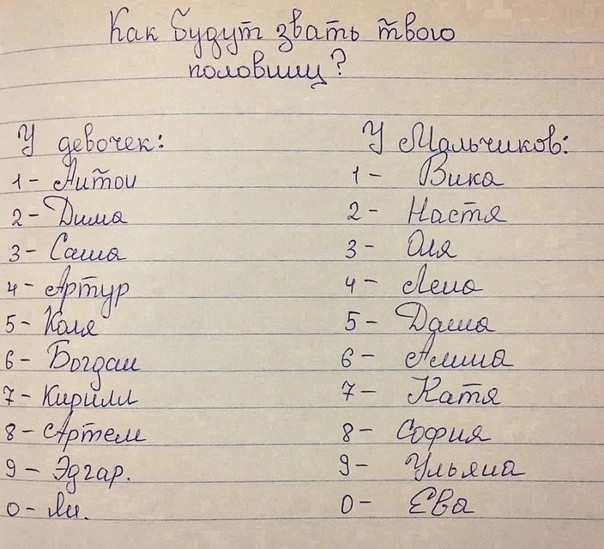 Как будут звать твого
половинц?
У девочек:
1 - Антон
2 - Дима
3 - Саша
4 - Артур
5 - Коля
6 - Богдан
7 - Кирилл
8 - Артем
9 - Эдгар.
0 - Ян.
У Мальчиков:
1 - Вика
2 - Настя
3 - Оля
4 - Лена
5 - Даша
6 - Алина
7 - Катя
8 - София
9 - Ульяна
0 - Ева